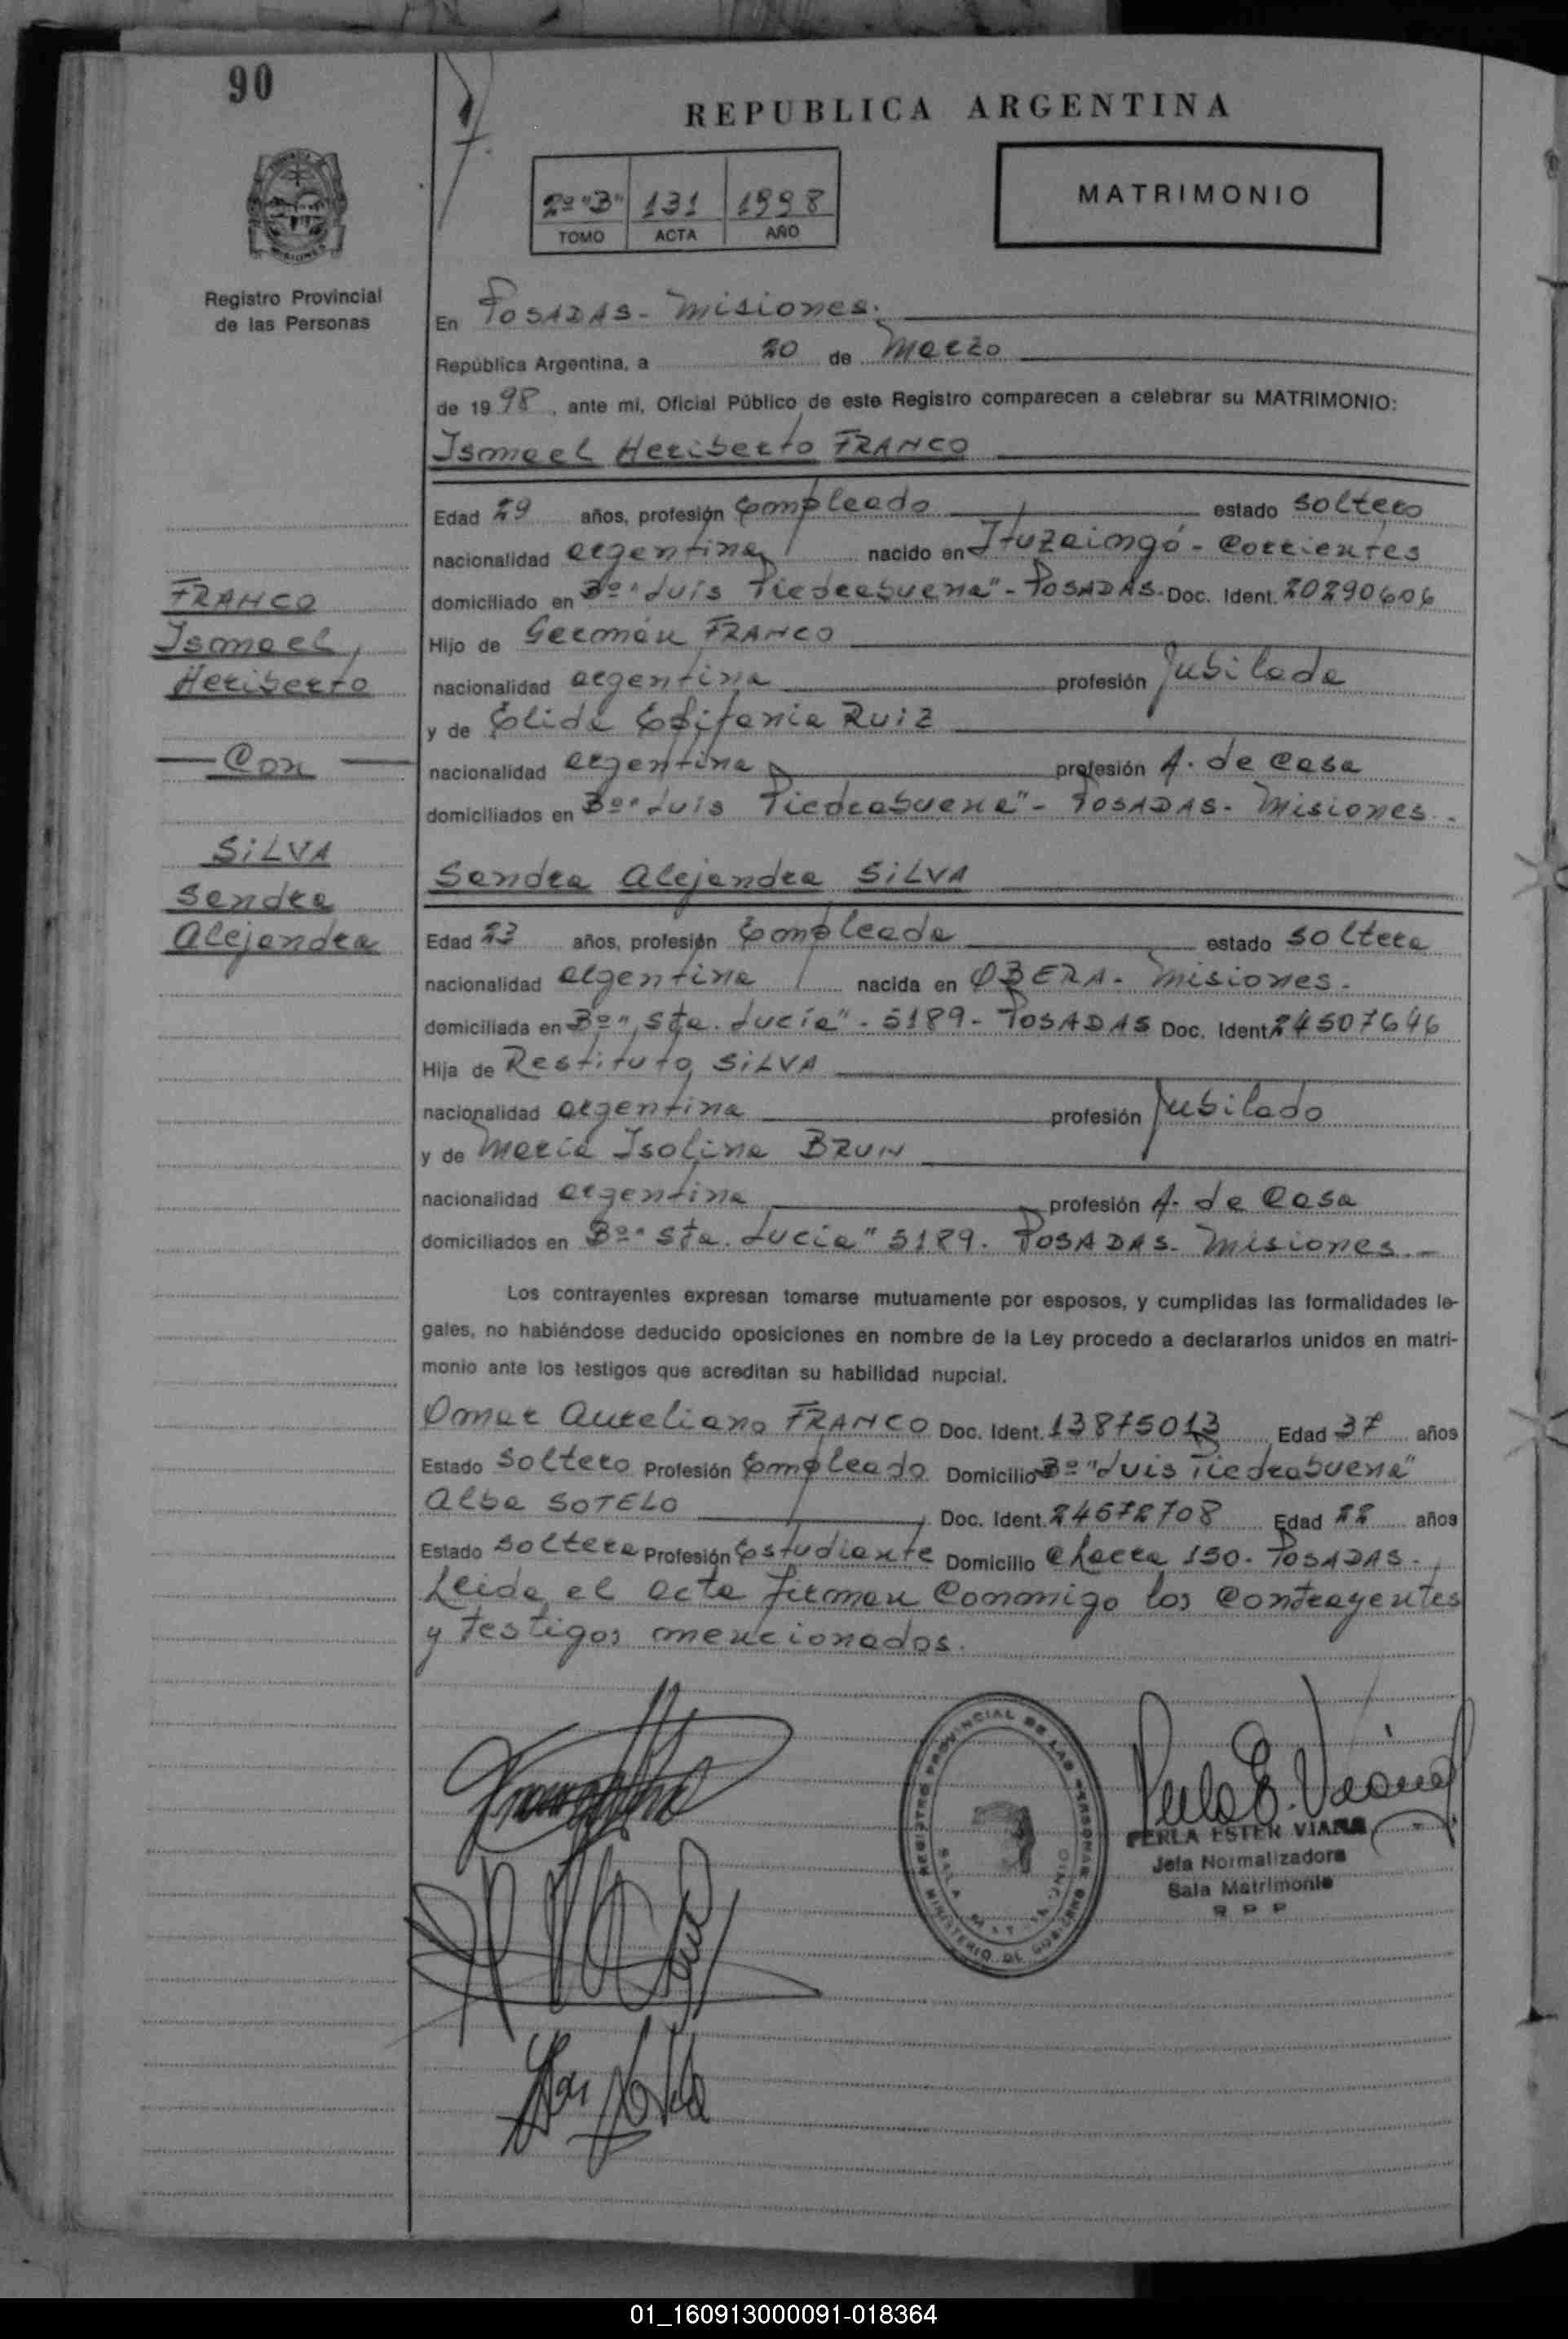 90
REPUBLICA ARGENTINA
MATRIMONIO
2º "B" 131 1998
TOMO ACTA AÑO
Registro Provincial
de las Personas
En POSADAS - Misiones.
República Argentina, a 20 de Marzo
de 1998, ante mí, Oficial Público de este Registro comparecen a celebrar su MATRIMONIO:
Ismael Heriberto FRANCO
Edad 29 años, profesión Empleado estado soltero
nacionalidad argentina nacido en Ituzaingó - Corrientes
domiciliado en Bº "Luis Piedrabuena" - POSADAS. Doc. Ident. 20290606
Hijo de Germán FRANCO
nacionalidad argentina profesión Jubilado
y de Elida Epifania RUIZ
nacionalidad argentina profesión A. de Casa
domiciliados en Bº "Luis Piedrabuena" - POSADAS - Misiones.
FRANCO
Ismael
Heriberto
Con
SILVA
Sandra
Alejandra
Sandra Alejandra SILVA
Edad 23 años, profesión Empleada estado soltera
nacionalidad argentina nacida en OBERA - Misiones.
domiciliada en Bº "Sta. Lucía" - 5189 - POSADAS Doc. Ident 24507646
Hija de Restituto SILVA
nacionalidad argentina profesión Jubilado
y de María Isolina BRUN
nacionalidad argentina profesión A. de Casa
domiciliados en Bº "Sta. Lucía" 5189. POSADAS - Misiones.
Los contrayentes expresan tomarse mutuamente por esposos, y cumplidas las formalidades le-
gales, no habiéndose deducido oposiciones en nombre de la Ley procedo a declararlos unidos en matri-
monio ante los testigos que acreditan su habilidad nupcial.
Omar Aureliano FRANCO Doc. Ident. 13875013 Edad 37 años
Estado Soltero Profesión Empleado Domicilio Bº "Luis Piedrabuena"
Alba SOTELO Doc. Ident. 24672708 Edad 22 años
Estado Soltera Profesión Estudiante Domicilio Chacra 150. POSADAS.
Leida el acta firman Conmigo los Contrayentes
y testigos mencionados.
REGISTRO PROVINCIAL DE LAS PERSONAS
MINISTERIO DE GOBIERNO
PERLA ESTER VIANA
Jefa Normalizadora
Sala Matrimonio
R P P
01_160913000091-018364